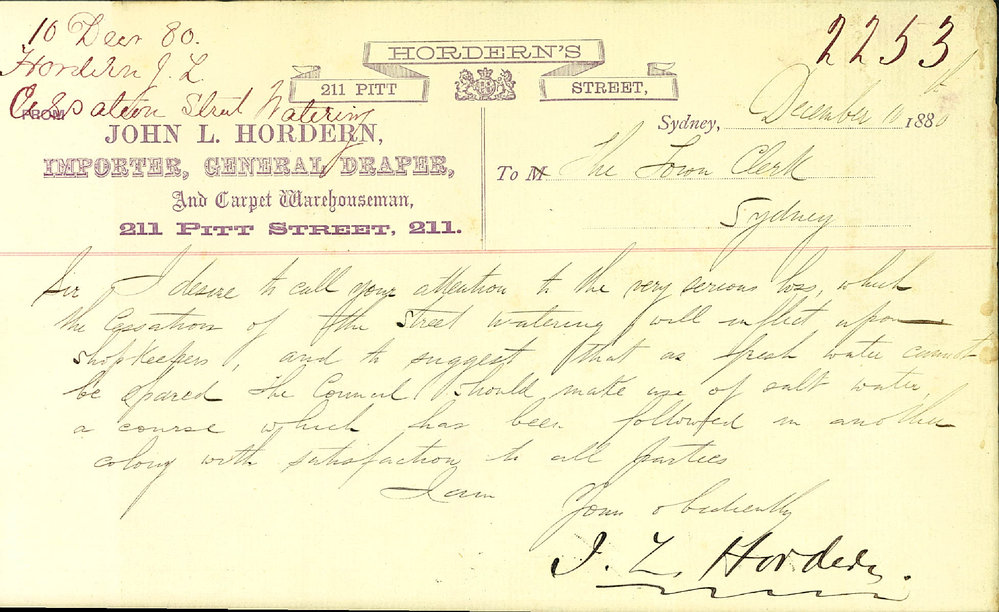 10 Decr 80.
Hordern J. L
Cessation Street Watering
2253
HORDERN'S
211 PITT
STREET,
FROM
JOHN L. HORDERN,
IMPORTER, GENERAL DRAPER,
And Carpet Warehouseman,
211 PITT STREET, 211.
Sydney, December 10th 1880
To M The Town Clerk
Sydney
Sir I desire to call your attention to the very serious loss, which
the Cessation of the street watering will inflict upon
shopkeepers, and to suggest that as fresh water cannot
be spared the Council should make use of salt water,
a course which has been followed in another
colony with satisfaction to all parties
I am
Yours obediently
J. L. Hordern.